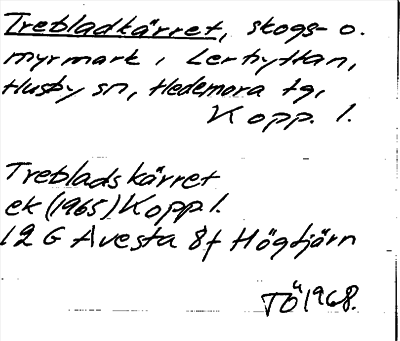 Trebladkärret, skogs- o.
myrmark, Lerhyttan,
Husby sn, Hedemora tg,
Kopp. l.
Treblads kärret
ek (1965) Kopp. l.
12 G Avesta 8f Högtjärn
TÖ 1968.